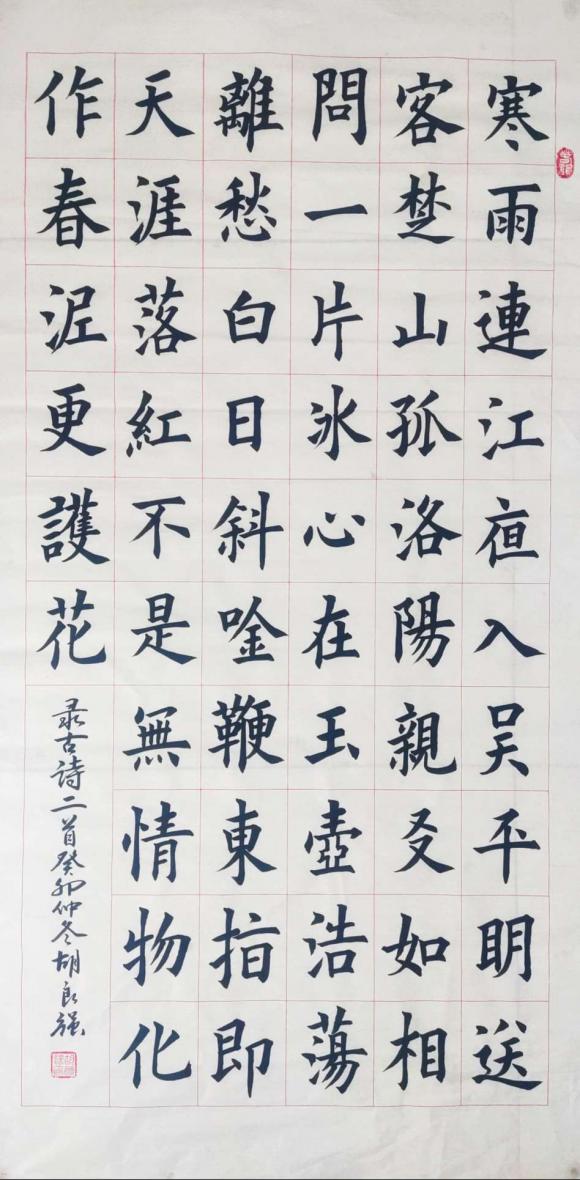 寒雨連江夜入吳平明送
客楚山孤洛陽親友如相
問一片氷心在玉壺浩蕩
離愁白日斜唫鞭東指即
天涯落紅不是無情物化
作春泥更護花
录古詩二首癸卯仲冬胡良强